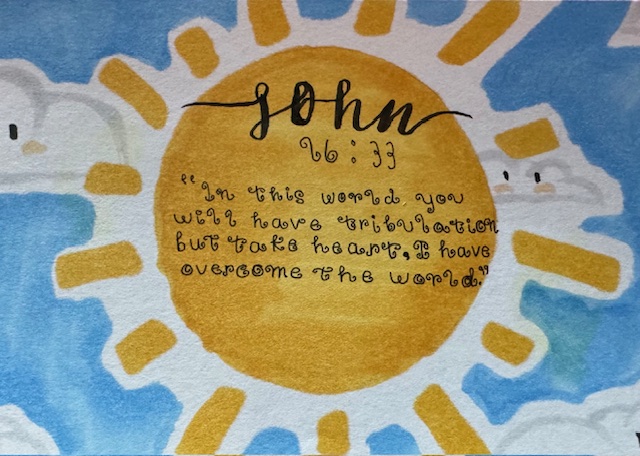 John
16:33
"In this world you
will have tribulation
but take heart, I have
overcome the world."